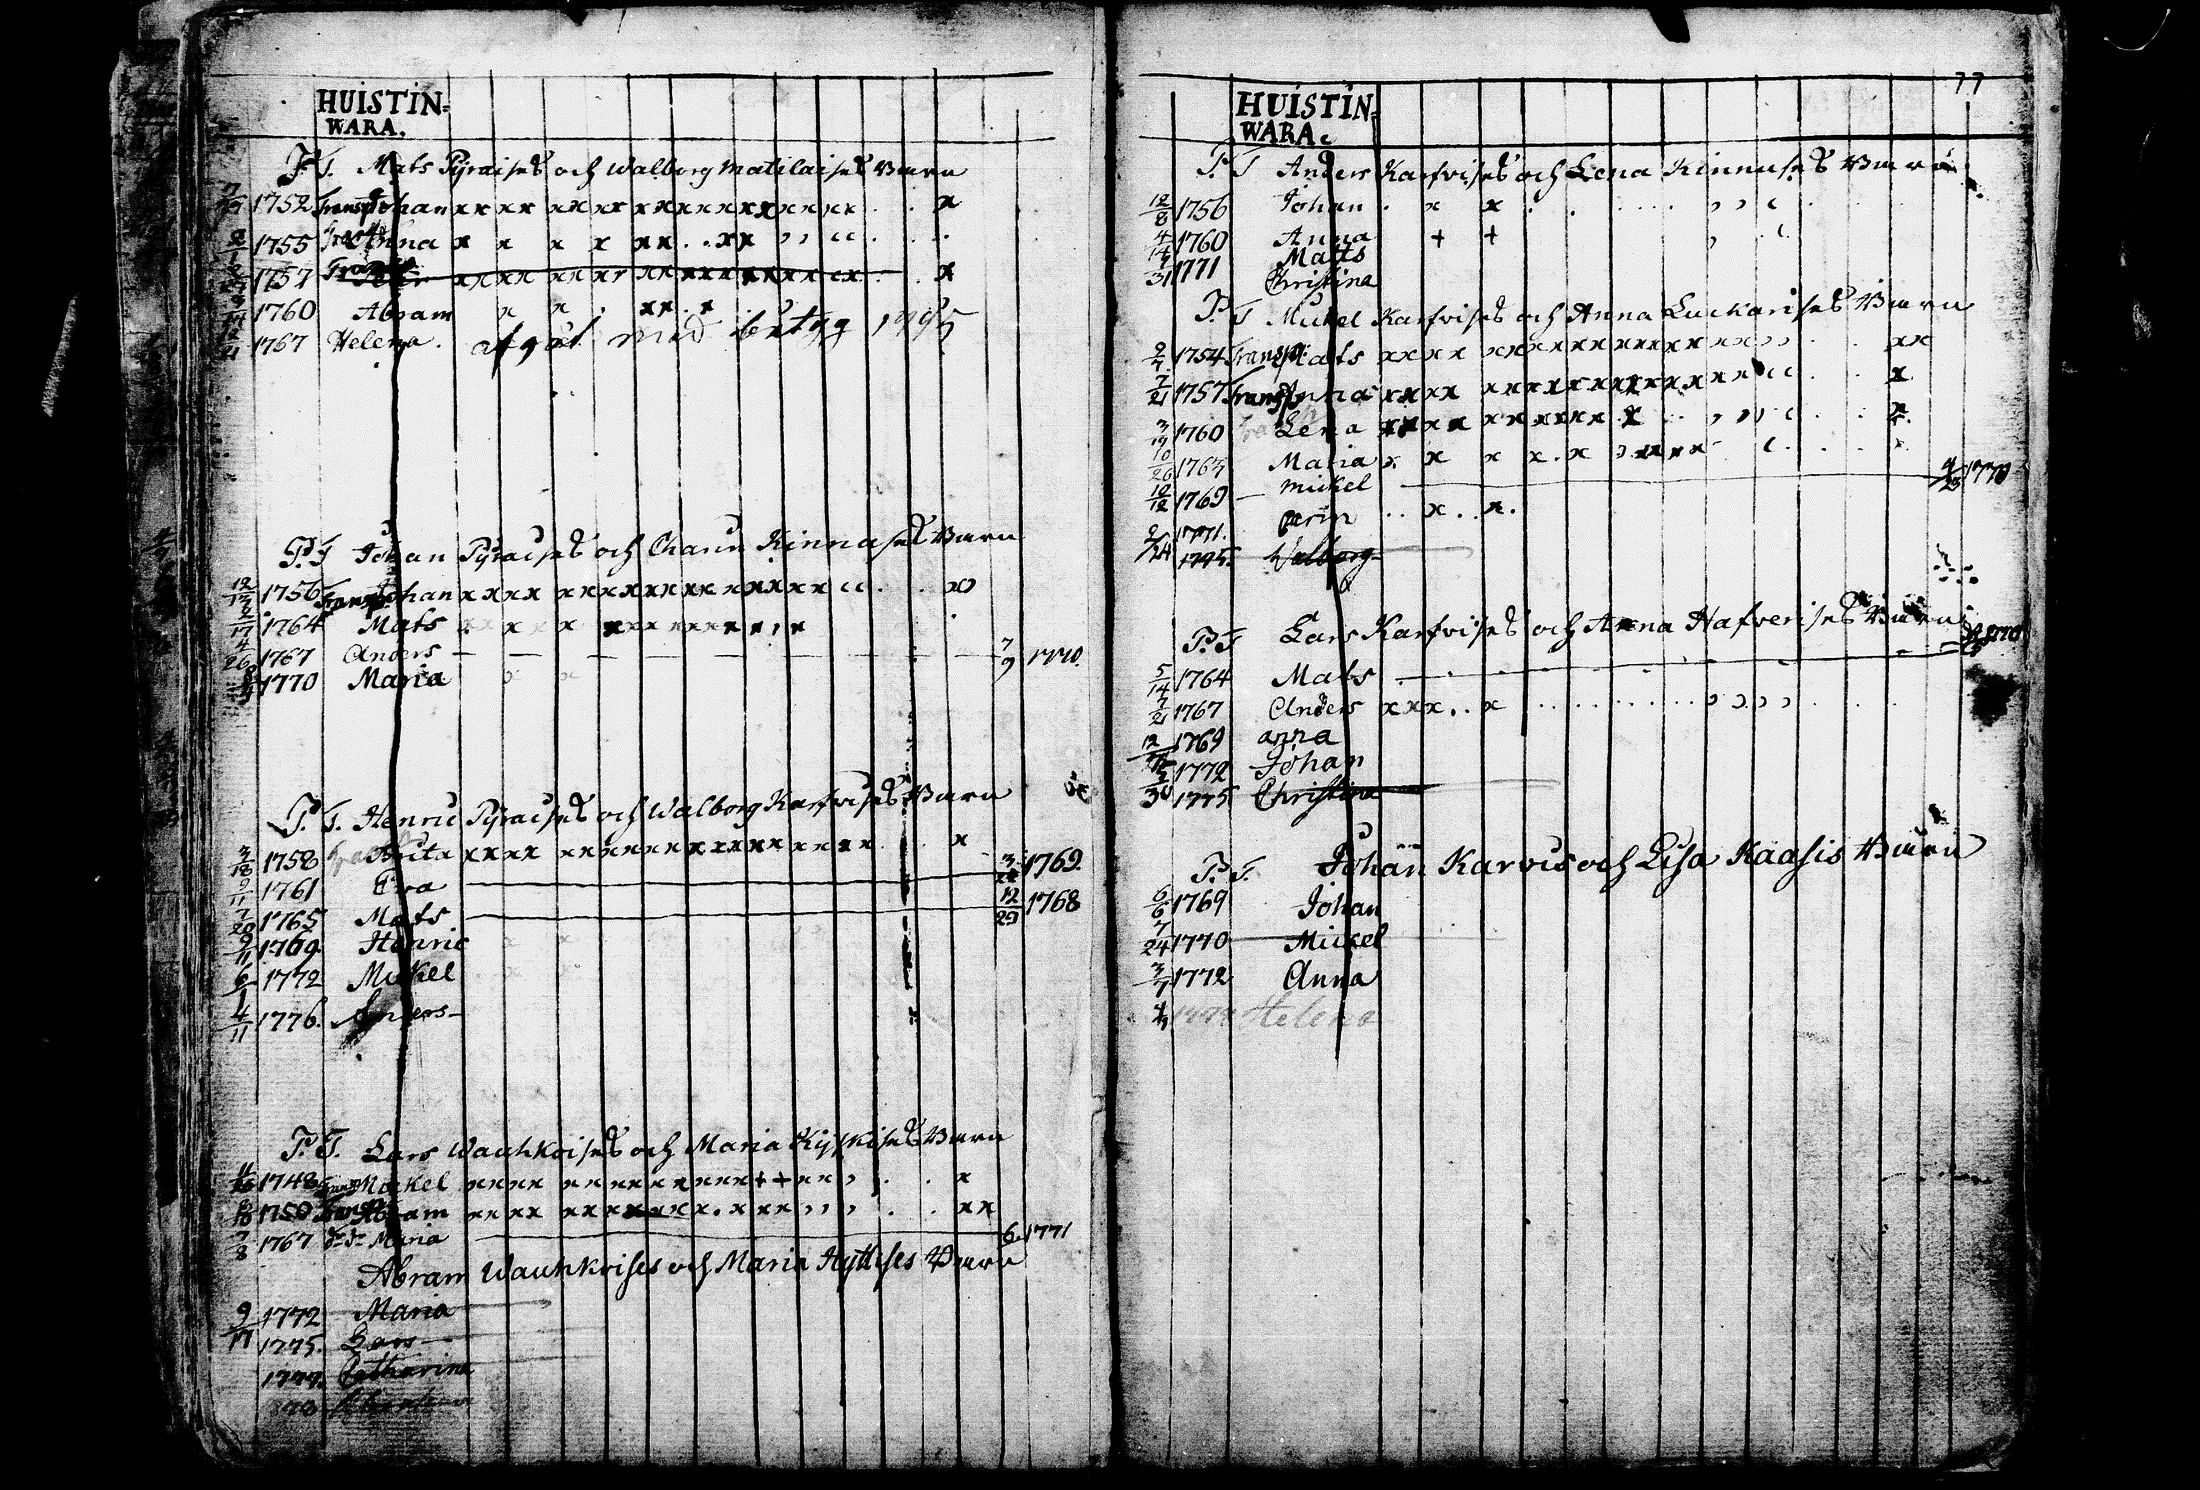 HUISTIN=
WARA.
P. T. Mats Pyraises och Walborg Matilaises Barn
7/27 1752 Transp Johan xx xx xx xx x x x x x x x x x x x x . . x
1755 Anna x x x x xx . . xx , , cc . . .
1757 Transp Peter xx xx xx xx xx xx x x x x x cx . . x
1760 Abram x x . xx . x
1767 Helena. afgåt med betyg 1795
P. T Johan Pyraises och Charin Kinnases Barn
12/13 1756 Transp Johan x x x x x x x x x x x x x x x x x cc . . xx
2/17 1764 Mats . x x x x x x x x x x x , x
4/26 1767 Anders — — — — — — — 7/9 1770.
1770 Maria x x
P. T. Henric Pyraises och Walborg Karfvises Barn
3/18 1758 Brita x x x x x x x x x x x x x x x x x . . x
9/11 1761 Ewa — 1769.
7/20 1765 Mats — 12/29 1768
9/11 1769 Henric
6/1 1772 Mickel
4/11 1776. Anders
P. T. Lars Wauhkoises och Maria Kyÿkises Barn
1748 Transp Mickel x x x x x x x x x x x x + + x x , . . x
1750 Transp Abram x x x x x x x x x x x . x x x , , , . . x x
7/8 1767 do do Maria — 6. 1771
Abram Wauhkoises och Maria Hyttises Barn
9/17 1772 Maria
1775. Lars
1777. Catharina
77
HUISTIN=
WARA.
P. T Anders Karfvises och Lena Kinnuses Barn
12/8 1756 Johan . x x . . . . . , , c .
4/14 1760 Anna + + , c
Matts
1771 Christina
P. T Mickel Karfvises och Anna Luckarises Barn
2/7 1754 Transp Mats x x x x x x x x x x x x x x x x , , . . x x
7/21 1757 Transp Anna x x x x x x x x x x x x x x x x c c . . x
3/19 1760 Lena x x x x x x x x x x . x . . , , , c . . x
10/26 1763 Maria x. x x x . x , . x x x x c . . . x
10/12 1769 — Mickel — 4/25 1770
2/24 1771. Carin . . x . . x .
1775. Walborg
P. T Lars Karfvises och Anna Hafverises Barn
5/14 1764 Mats —
7/21 1767 Anders x x x . . x . . . . . . . . , , , , . . .
1769 anna
1772 Johan
1775 Christina
P. T. Johan Karvis och Lisa Kaasis Barn
6/6 1769 Johan
7/24 1770 Mickel
3/7 1772 Anna
Helena